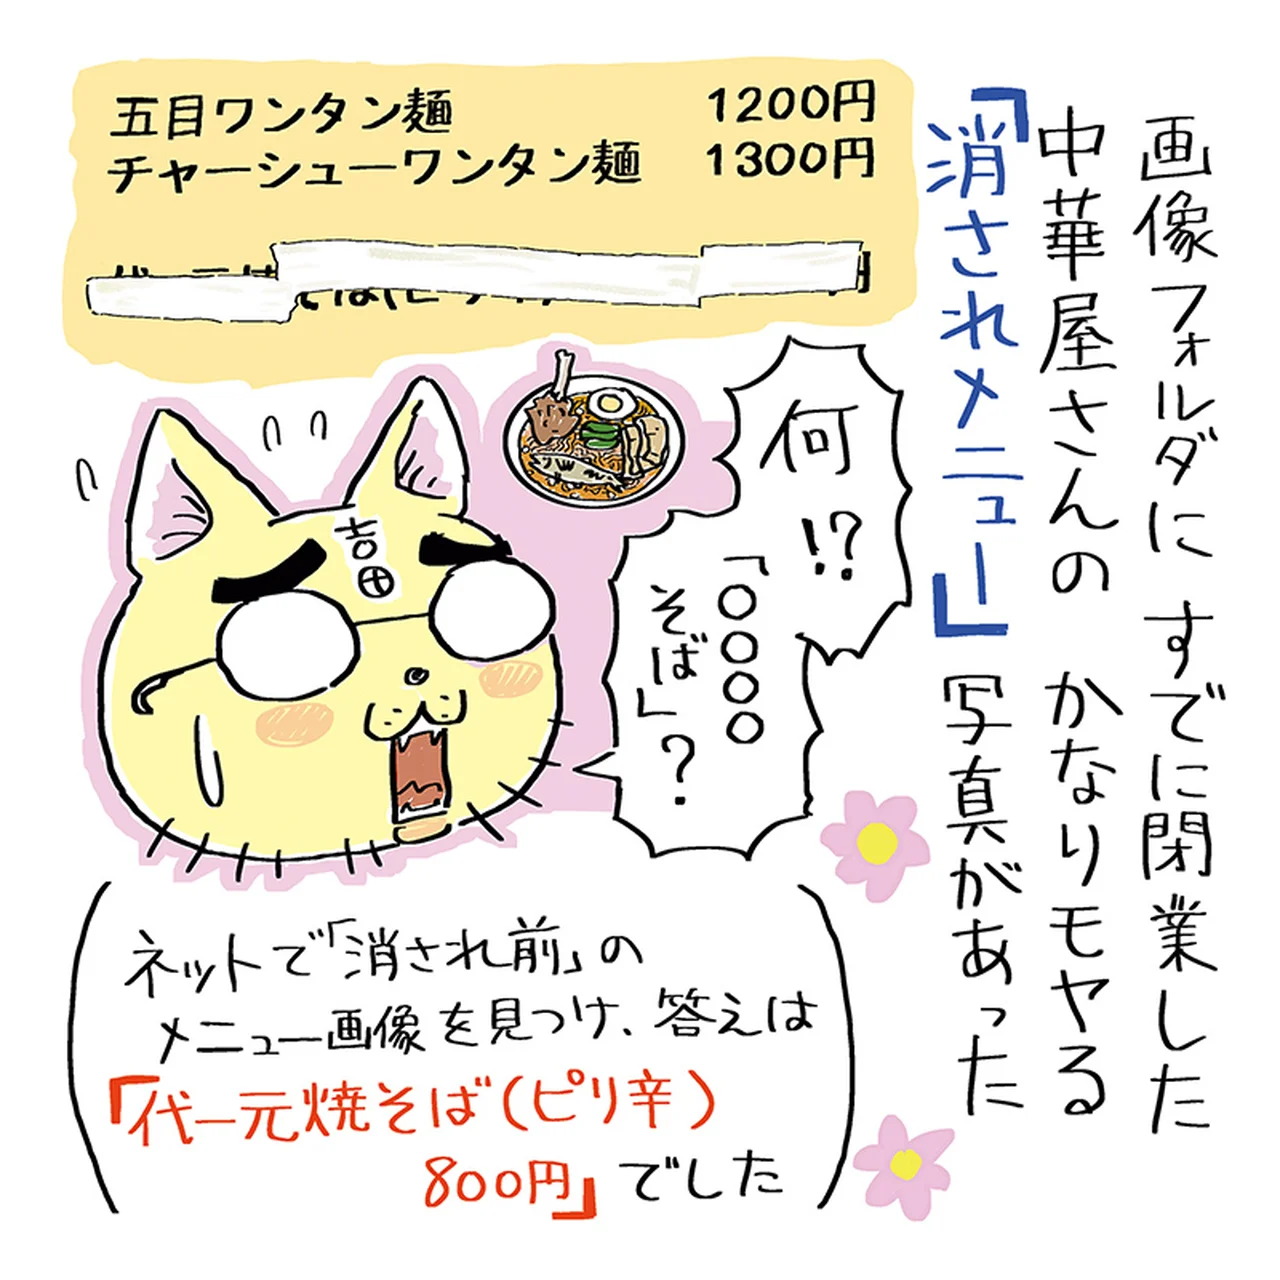 画像フォルダに すでに閉業した
中華屋さんの かなりモヤる
「消されメニュー」写真があった
五目ワンタン麺 1200円
チャーシューワンタン麺 1300円
何!?
「〇〇〇〇
そば」?
吉田
(ネットで「消され前」の
メニュー画像を見つけ、答えは
「代一元焼そば(ピリ辛)
800円」でした)